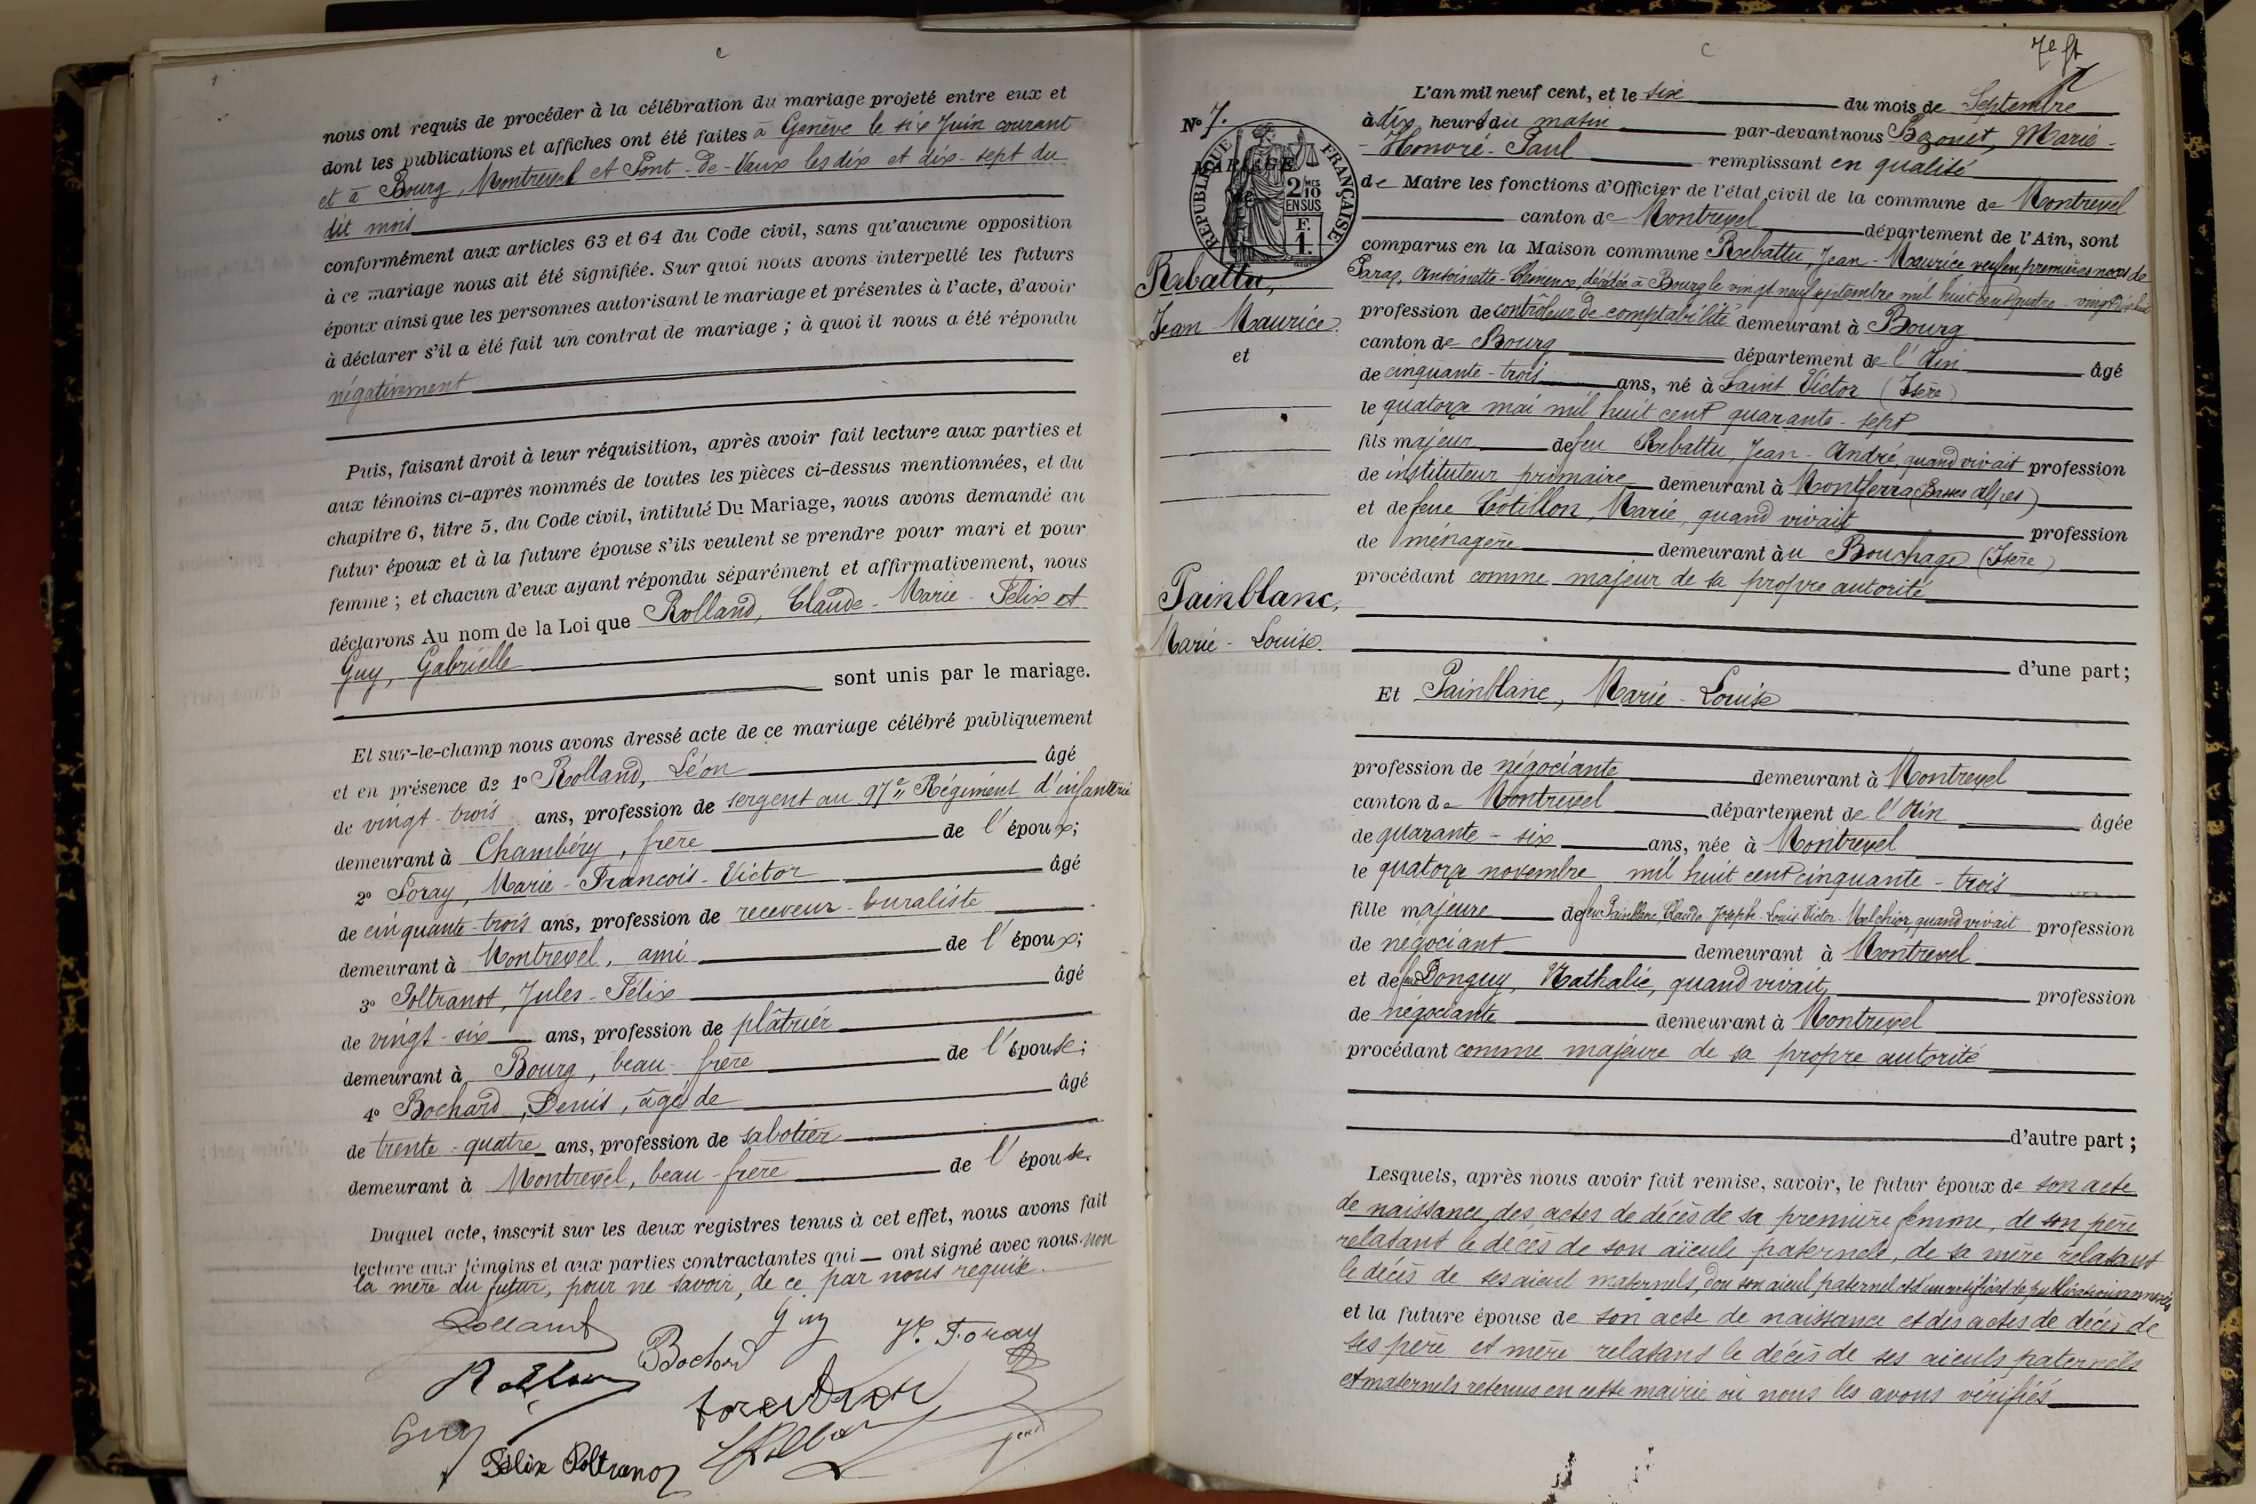 nous ont requis de procéder à la célébration du mariage projeté entre eux et
dont les publications et affiches ont été faites à Genève le six Juin courant
et à Bourg, Montrevel et Pont-de-Vaux les dix et dix-sept du
dit mois
conformément aux articles 63 et 64 du Code civil, sans qu'aucune opposition
à ce mariage nous ait été signifiée. Sur quoi nous avons interpellé les futurs
époux ainsi que les personnes autorisant le mariage et présentes à l'acte, d'avoir
à déclarer s'il a été fait un contrat de mariage ; à quoi il nous a été répondu
négativement
Puis, faisant droit à leur réquisition, après avoir fait lecture aux parties et
aux témoins ci-après nommés de toutes les pièces ci-dessus mentionnées, et du
chapitre 6, titre 5, du Code civil, intitulé Du Mariage, nous avons demandé au
futur époux et à la future épouse s'ils veulent se prendre pour mari et pour
femme ; et chacun d'eux ayant répondu séparément et affirmativement, nous
déclarons Au nom de la Loi que Rolland, Claude-Marie-Félix et
Guy, Gabrielle
sont unis par le mariage.
Et sur-le-champ nous avons dressé acte de ce mariage célébré publiquement
et en présence de 1º Rolland, Léon âgé
de vingt-trois ans, profession de sergent au 97e Régiment d'infanterie
demeurant à Chambéry, frère de l'époux;
2º Foray, Marie-François-Victor âgé
de cinquante-trois ans, profession de receveur-buraliste
demeurant à Montrevel, ami de l'époux;
3º Poltranot, Jules-Félix âgé
de vingt-six ans, profession de plâtrier
demeurant à Bourg, beau-frère de l'épouse;
4º Bochard, Denis, âgé de âgé
de trente-quatre ans, profession de sabotier
demeurant à Montrevel, beau-frère de l'épouse.
Duquel acte, inscrit sur les deux registres tenus à cet effet, nous avons fait
lecture aux témoins et aux parties contractantes qui ont signé avec nous non
la mère du futur, pour ne savoir, de ce par nous requise.
Rolland
Guy
Vr Foray
Bochard
Guy
Félix Poltranot
7e ft
Nº 7.
MARIAGE
RÉPUBLIQUE FRANÇAISE
2/10 MES
EN SUS
F.
1.
Rebattu,
Jean-Maurice.
et
Painblanc,
Marie-Louise.
L'an mil neuf cent, et le six du mois de Septembre
à dix heures du matin par-devant nous Bozonet, Marie-
-Honoré-Paul remplissant en qualité
de Maire les fonctions d'Officier de l'état civil de la commune de Montrevel
canton de Montrevel département de l'Ain, sont
comparus en la Maison commune Rebattu, Jean-Maurice, veuf en premières noces de
Antoinette-Clémence, décédée à Bourg le vingt neuf septembre mil huit cent quatre-vingt
profession de contrôleur de comptabilité demeurant à Bourg
canton de Bourg département de l'Ain âgé
de cinquante-trois ans, né à Saint Victor (Isère)
le quatorze mai mil huit cent quarante-sept
fils majeur de feu Rebattu, Jean-André, quand vivait profession
de instituteur primaire demeurant à Montferra (Basses Alpes)
et de feue Cotillon, Marie, quand vivait profession
de ménagère demeurant au Bouchage (Isère)
procédant comme majeur de sa propre autorité
d'une part;
Et Painblanc, Marie-Louise
profession de négociante demeurant à Montrevel
canton de Montrevel département de l'Ain âgée
de quarante-six ans, née à Montrevel
le quatorze novembre mil huit cent cinquante-trois
fille majeure de feu Painblanc, Claude-Joseph-Louis-Victor-Melchior, quand vivait profession
de négociant demeurant à Montrevel
et de feue Donguy, Nathalie, quand vivait, profession
de négociante demeurant à Montrevel
procédant comme majeure de sa propre autorité
d'autre part ;
Lesquels, après nous avoir fait remise, savoir, le futur époux de son acte
de naissance, des actes de décès de sa première femme, de son père
relatant le décès de son aïeule paternelle, de sa mère relatant
le décès de ses aïeuls maternels, de son aïeul paternel et d'un certificat de publications annexés
et la future épouse de son acte de naissance et des actes de décès de
ses père et mère relatant le décès de ses aïeuls paternels
et maternels retenus en cette mairie où nous les avons vérifiés